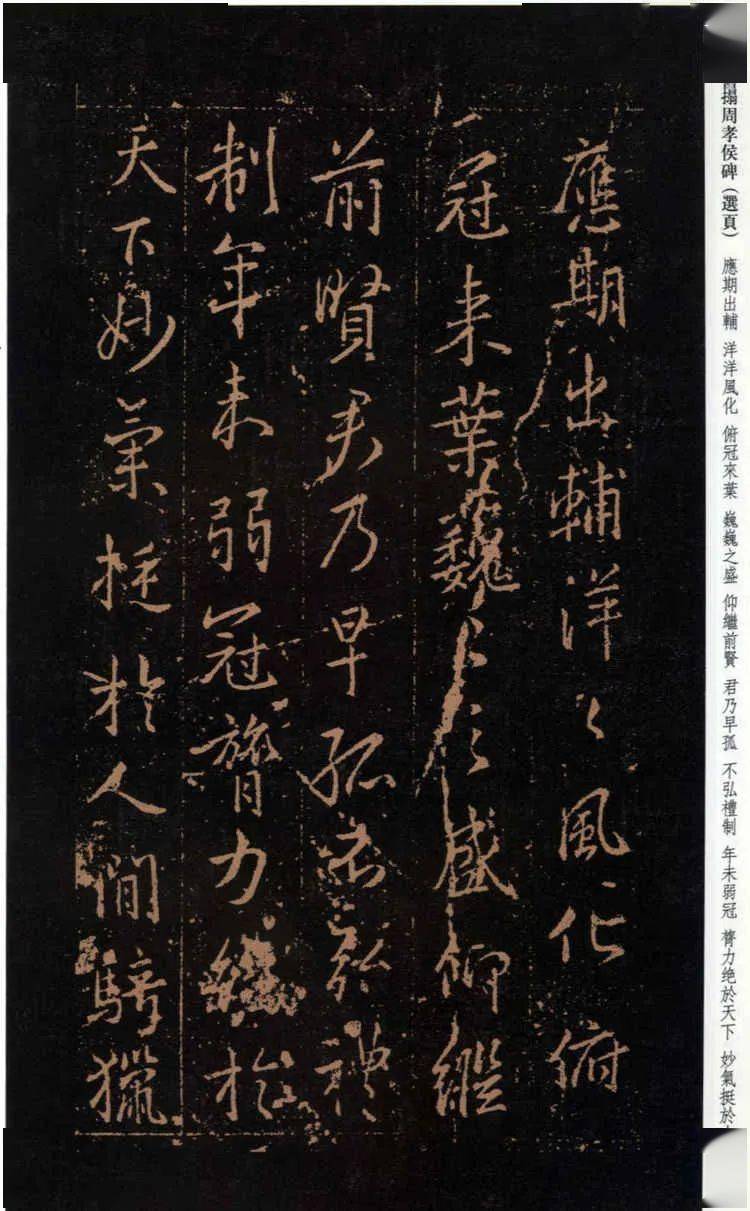 應期出輔洋〻風化俯
冠来葉巍〻之盛仰継
前賢君乃早孤不弘禮
制年未弱冠膂力絶於
天下妙氣挺於人間騎獵
搨周孝侯碑（選頁） 應期出輔 洋洋風化 俯冠來葉 巍巍之盛 仰繼前賢 君乃早孤 不弘禮制 年未弱冠 膂力绝於天下 妙氣挺於